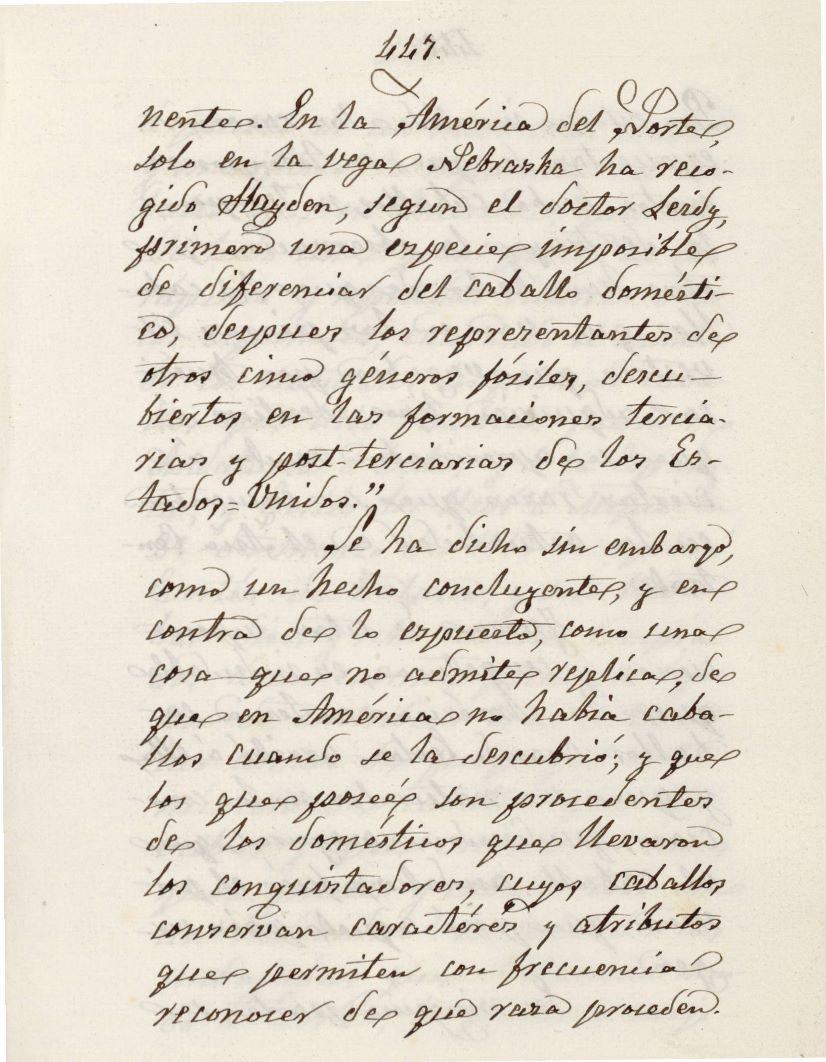 447.
nente. En la América del Norte,
solo en la vega Nebraska ha reco-
gido Hayden, segun el doctor Leidy,
primero una especie imposible
de diferenciar del caballo domésti-
co, despues los representantes de
otros cinco géneros fósiles, descu-
biertos en las formaciones tercia-
rias y post-terciarias de los Es-
tados=Unidos."
Se ha dicho sin embargo,
como un hecho concluyente, y en
contra de lo espuesto, como una
cosa que no admite replica, de
que en América no habia caba-
llos cuando se la descubrió; y que
los que poseé, son procedentes
de los domésticos que llevaron
los conquistadores, cuyos caballos
conservan caractéres y atributos
que permiten con frecuencia
reconocer de que raza proceden.